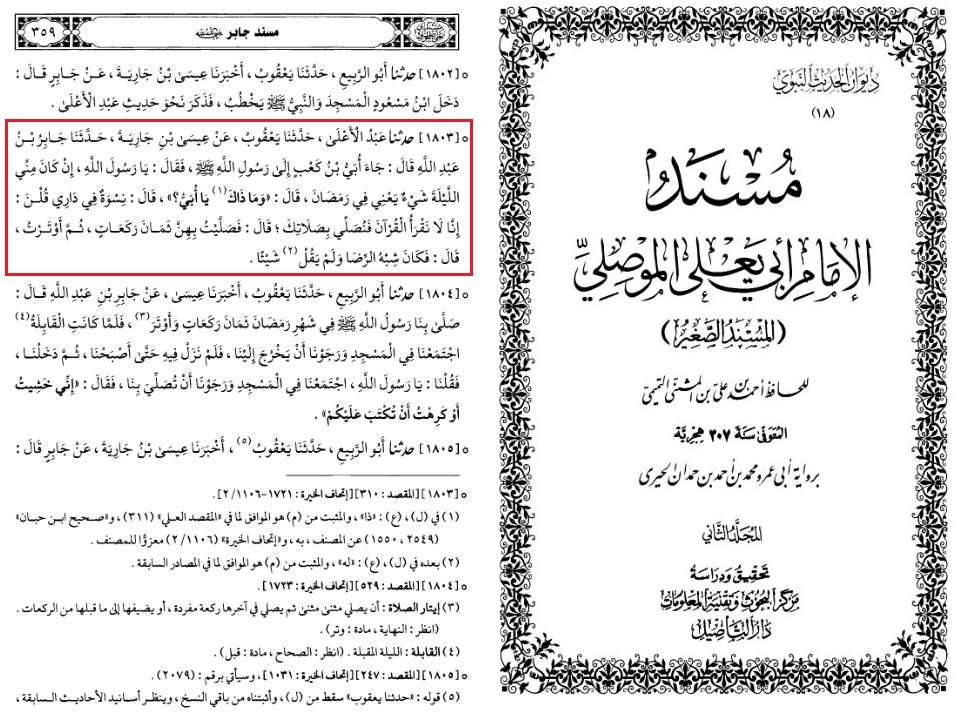 مسند جابر
٣٥٩
[١٨٠٢] حدثنا أَبُو الرَّبِيعِ ، حَدَّثَنَا يَعْقُوبُ ، أَخْبَرَنَا عِيسَىٰ بْنُ جَارِيَةَ ، عَنْ جَابِرٍ قَالَ :
دَخَلَ ابْنُ مَسْعُودٍ الْمَسْجِدَ وَالنَّبِيُّ ﷺ يَخْطُبُ ، فَذَكَرَ نَحْوَ حَدِيثِ عَبْدِ الْأَعْلَىٰ .
[١٨٠٣] حدثنا عَبْدُ الْأَعْلَىٰ ، حَدَّثَنَا يَعْقُوبُ ، عَنْ عِيسَىٰ بْنِ جَارِيَةَ ، حَدَّثَنَا جَابِرُ بْنُ
عَبْدِ اللَّهِ قَالَ : جَاءَ أُبَيُّ بْنُ كَعْبٍ إِلَىٰ رَسُولِ اللَّهِ ﷺ ، فَقَالَ : يَا رَسُولَ اللَّهِ ، إِنْ كَانَ مِنِّي
اللَّيْلَةَ شَيْءٌ يَعْنِي فِي رَمَضَانَ ، قَالَ : «وَمَا ذَاكَ(١) يَا أُبَيُّ؟» ، قَالَ : نِسْوَةٌ فِي دَارِي قُلْنَ :
إِنَّا لَا نَقْرَأُ الْقُرْآنَ فَنُصَلِّي بِصَلَاتِكَ ؛ قَالَ : فَصَلَّيْتُ بِهِنَّ ثَمَانَ رَكَعَاتٍ ، ثُمَّ أَوْتَرْتُ ،
قَالَ : فَكَانَ شِبْهُ الرِّضَا وَلَمْ يَقُلْ(٢) شَيْئًا .
[١٨٠٤] حدثنا أَبُو الرَّبِيعِ ، حَدَّثَنَا يَعْقُوبُ ، أَخْبَرَنَا عِيسَىٰ ، عَنْ جَابِرِ بْنِ عَبْدِ اللَّهِ قَالَ :
صَلَّىٰ بِنَا رَسُولُ اللَّهِ ﷺ فِي شَهْرِ رَمَضَانَ ثَمَانَ رَكَعَاتٍ وَأَوْتَرَ(٣) ، فَلَمَّا كَانَتِ الْقَابِلَةُ(٤)
اجْتَمَعْنَا فِي الْمَسْجِدِ وَرَجَوْنَا أَنْ يَخْرُجَ إِلَيْنَا ، فَلَمْ نَزَلْ فِيهِ حَتَّىٰ أَصْبَحْنَا ، ثُمَّ دَخَلْنَا ،
فَقُلْنَا : يَا رَسُولَ اللَّهِ ، اجْتَمَعْنَا فِي الْمَسْجِدِ وَرَجَوْنَا أَنْ تُصَلِّيَ بِنَا ، فَقَالَ : «إِنِّي خَشِيتُ
أَوْ كَرِهْتُ أَنْ تُكْتَبَ عَلَيْكُمْ» .
[١٨٠٥] حدثنا أَبُو الرَّبِيعِ ، حَدَّثَنَا يَعْقُوبُ(٥) ، أَخْبَرَنَا عِيسَىٰ بْنُ جَارِيَةَ ، عَنْ جَابِرٍ قَالَ :
[١٨٠٣] [المقصد : ٣١٠] [إتحاف الخيرة : ١٧٢١-١١٠٦/ ٢] .
(١) في (ل) ، (ع) : «ذا» ، والمثبت من (م) هو الموافق لما في «المقصد العلي» (٣١١) ، و«صحيح ابن حبان»
(٢٥٤٩ ، ١٥٥٠) عن المصنف ، به ، و«إتحاف الخيرة» (١١٠٦/ ٢) معزوًّا للمصنف .
(٢) بعده في (ل) ، (ع) : «له» ، والمثبت من (م) هو الموافق لما في المصادر السابقة .
[١٨٠٤] [المقصد : ٥٢٩] [إتحاف الخيرة : ١٧٢٣] .
(٣) إيتار الصلاة : أن يصلي مثنىٰ مثنىٰ ثم يصلي في آخرها ركعة مفردة ، أو يضيفها إلىٰ ما قبلها من الركعات .
(انظر : النهاية ، مادة : وتر) .
(٤) القابلة : الليلة المقبلة . (انظر : الصحاح ، مادة : قبل) .
[١٨٠٥] [المقصد : ٢٤٧] [إتحاف الخيرة : ١٠٣١] ، وسيأتي برقم : (٢٠٧٩) .
(٥) قوله : «حدثنا يعقوب» سقط من (ل) ، وأثبتناه من باقي النسخ ، وينظر أسانيد الأحاديث السابقة ،
ديوان الحديث النبوي
(١٨)
مُسْنَدُ
الإمام أبي يعلى الموصلي
(المسند الصغير)
للحافظ أحمد بن علي بن المثنى التميمي
المتوفى سنة ٣٠٧ هجرية
برواية أبي عمرو محمد بن أحمد بن حمدان الحيري
المجلد الثاني
تحقيق ودراسة
مركز البحوث وتقنية المعلومات
دار التأصيل